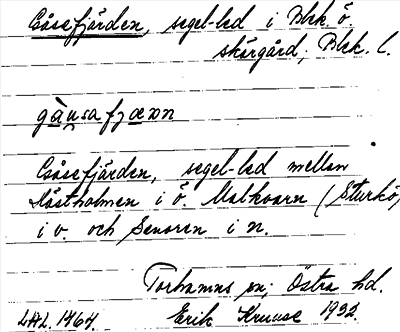 Gåsefjärden, segel-led i Blek. ö.
skärgård; Blek. l.
gåṇsafjæṇn
Gåsefjärden, segel-led mellan
Hästholmen i ö. Malkvarn (Sturkö)
i v. och Senoren i n.
Torhamns sn; Östra hd.
LAL. 1464. Erik Kruuse 1932.